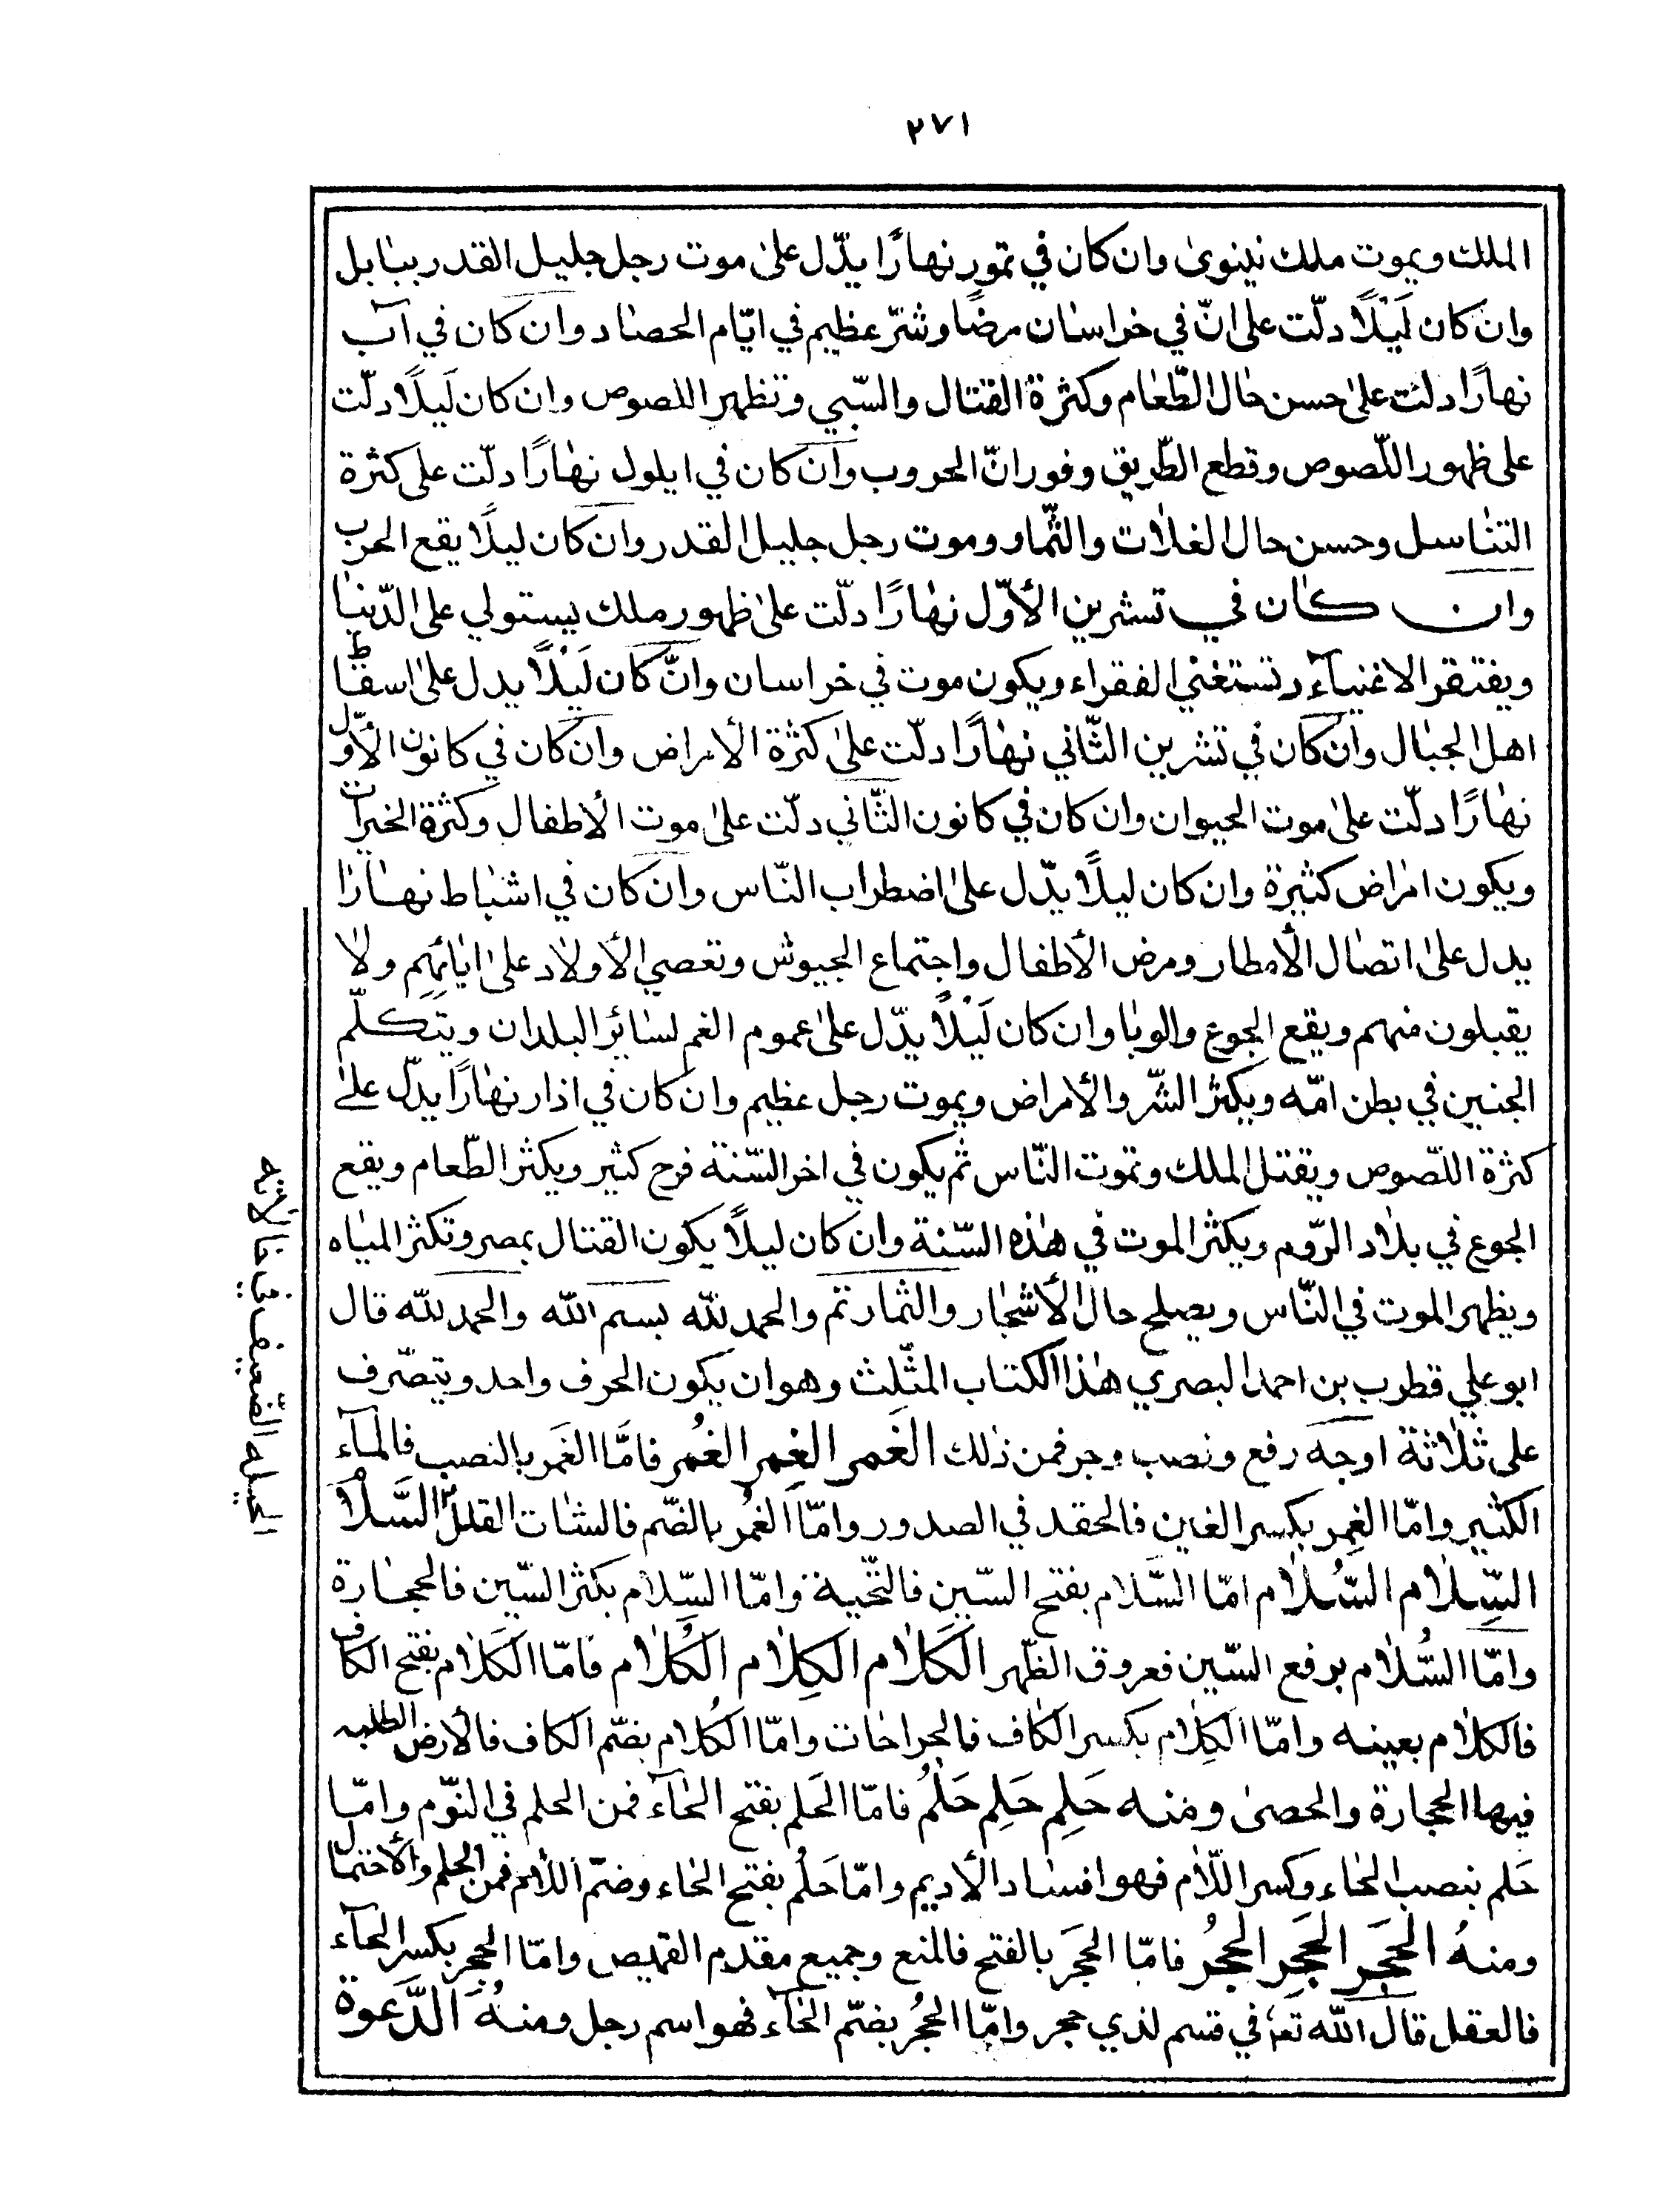 ٢٧١
الملك ويموت ملك نينوىٰ وان كان في تموز نهارًا يدّل علىٰ موت رجل جليل القدر ببٰابل
وان كان لَيْلًا دلّت على انّ في خراسٰان مرضًا وشرّ عظيم في ايّام الحصٰاد وان كان في آب
نهارًا دلت علىٰ حسن حٰال الطّعٰام وكثرة القتال والسّبي وتظهر اللصوص وان كان لَيلًا دلّت
على ظهور اللّصوص وقطع الطّريق وفورانّ الحروب وان كان في ايلول نهٰارًا دلّت على كثرة
التنٰاسل وحسن حال الغلات والثّمار وموت رجل جليل القدر وان كان ليلًا يقع الحرب
وان كٰان في تشرين الأوّل نهٰارًا دلّت علىٰ ظهور ملك يستولي على الدّنيٰا
ويفتقر الاغنيآء وتستغني الفقراء ويكون موت في خراسان وانّ كان لَيْلًا يدل علىٰ اسقٰاط
اهل الجبٰال وان كان في تشرين الثّاني نهٰارًا دلّت علىٰ كثرة الأمراض وان كان في كانون الأوّل
نهٰارًا دلّت علىٰ موت الحيوان وان كان في كانون الثّاني دلّت علىٰ موت الأطفال وكثرة الخيرات
ويكون امرٰاض كثيرة وان كان ليلًا يدّل علىٰ اضطراب النّاس وان كان في اشبٰاط نهٰارًا
يدل علىٰ اتصٰال الأمطار ومرض الأطفال واجتماع الجيوش وتعصي الأولٰاد علىٰ ابٰائهم ولٰا
يقبلون منهم ويقع الجوع والوبٰا وان كان لَيْلًا يدّل علىٰ عموم الغم لسٰائر البلدان ويتكلّم
الجنين في بطن امّه ويكثر الشّر والأمراض ويموت رجل عظيم وان كان في اذار نهٰارًا يدّل علىٰ
كثرة اللّصوص ويقتل الملك وتموت النّاس ثم يكون في اخر السّنة فرح كثير ويكثر الطّعام ويقع
الجوع في بلٰاد الرّوم ويكثر الموت في هٰذه السّنة وان كان ليلًا يكون القتال بمصر وتكثر الميٰاه
ويظهر الموت في النّاس ويصلح حال الأشجٰار والثمار تم والحمد للّه بسم اللّه والحمد للّه قال
ابو علي قطرب بن احمد البصري هٰذا الكتاب المثّلث وهو ان يكون الحرف واحد ويتصّرف
على ثلٰاثة اوجه رفع ونصب وجر فمن ذلك الغَمر الغِمر الغُمر فامّا الغَمر بالنصب فالمآء
الكثير وامّا الغِمر بكسر الغين فالحقد في الصدور وامّا الغُمر بالضّم فالشاب القلل السَّلٰام
السِّلٰام السُّلٰام امّا السَّلام بفتح السّين فالتّحية وامّا السِّلام بكثر السّين فالحجٰارة
وامّا السُّلٰام برفع السّين فعروق الظّهر الكَلٰام الكِلٰام الكُلٰام فامّا الكَلٰام بفتح الكاف
فالكلٰام بعينه وامّا الكِلٰام بكسر الكاف فالجراحٰات وامّا الكُلام بضّم الكاف فالأرض الصلبه
فيها الحجارة والحصىٰ ومنه حَلِم حَلِم حَلُم فامّا الحَلم بفتح الحٰآء فمن الحلم في النّوم وامّا
حَلم بنصب الحٰاء وكسر اللّام فهو افسٰاد الأديم وامّا حَلُم بفتح الحٰاء وضمّ اللّام فمن الحلم والأحتمال
ومنهُ الحَجَر الحَجَرِ الحجُرُ فامّا الحجَر بالفتح فالمنع وجميع مقدم القميص وامّا الحِجر بكسر الحآء
فالعقل قال اللّه تعٰ في قسم لذي حجر وامّا الحُجُر بضّم الحٰآء فهو اسم رجل ومنهُ الدَّعوة
الحيله الضّعيف في خالاته